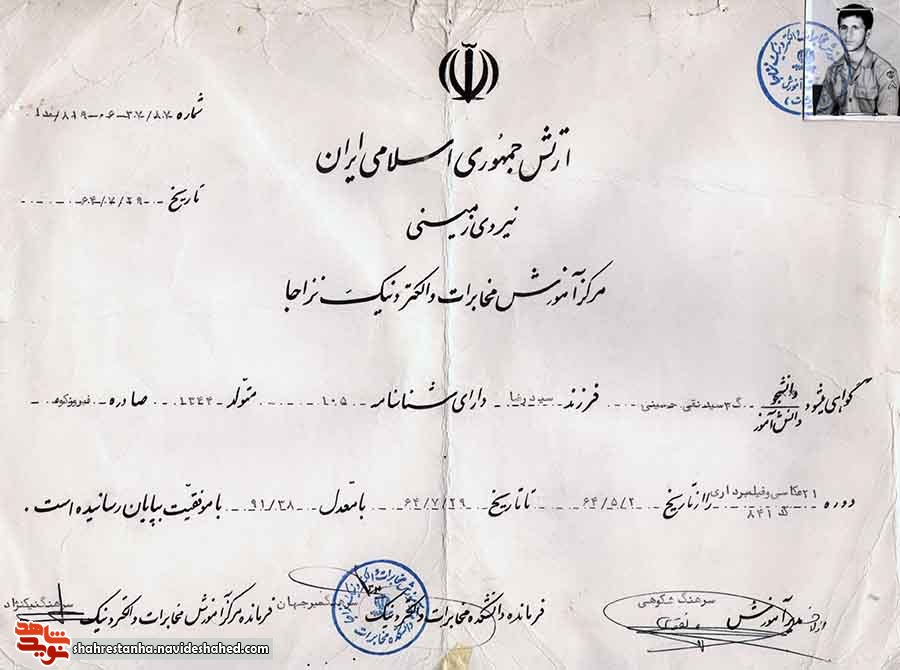 شماره ۳۷/۸۷-۰۶-۸۱۹/
ارتش جمهوری اسلامی ایران
تاریخ ۶۴/۷/۲۹
نیروی زمینی
مرکز آموزش مخابرات و الکترونیک نزاجا
گواهی میشود دانشجو گ۳ سیدتقی حسینی فرزند سیدرضا دارای شناسنامه ۱۰۵ متولد ۱۳۴۴ صادره فیروزکوه
دانش آموز
دوره ۲۱ عکاسی و فیلمبرداری را از تاریخ ۶۴/۵/۲ تا تاریخ ۶۴/۷/۲۹ با معدل ۹۱/۳۸ با موفقیت بپایان رسانیده است.
ک ۸۴۱
سرهنگ شکوهی
آموزش
فرمانده دانشکده مخابرات و الکترونیک
سرهنگ نیکنژاد
فرمانده مرکز آموزش مخابرات و الکترونیک
نوید شاهد
shahrestanha.navideshahed.com